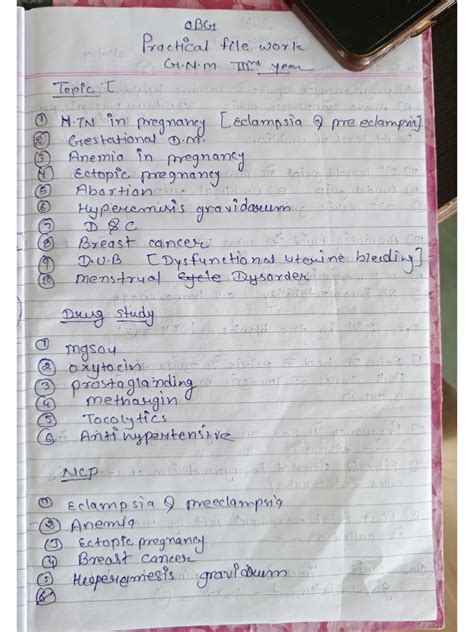 OBG
Practical file work
G.N.M IIIrd year
Topic : I
1 H.TN in pregnancy [Eclampsia & pre eclampsia]
2 Gestational D.M.
3 Anemia in pregnancy
4 Ectopic pregnancy
5 Abortion
6 Hyperemisis gravidarum
7 D & C
8 Breast cancer
9 D.U.B [Dysfunctional uterine bleeding]
10 menstrual Cycle Dysorder
Drug study
1 mgso4
2 oxytocin
3 prostaglanding
4 methargin
5 Tocolytics
6 Antihypertensive
NCP
1 Eclampsia & preeclampsia
2 Anemia
3 Ectopic pregnancy
4 Breast cancer
5 Heeperemesis gravidarum
6